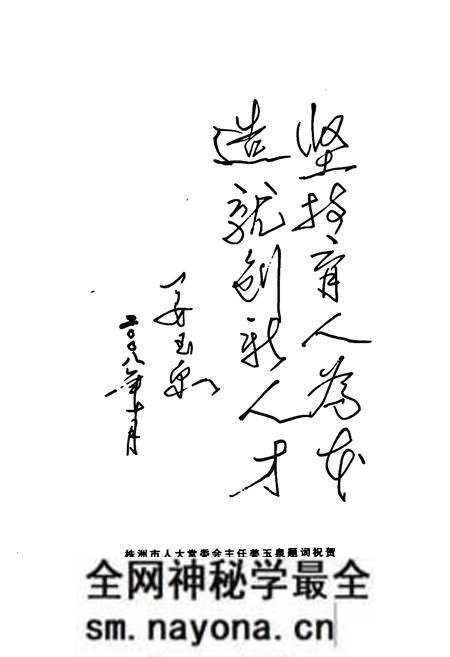 坚持育人为本
造就创新人才
姜玉泉
二〇〇八年十月
株洲市人大常委会主任姜玉泉题词祝贺
全网神秘学最全
sm.nayona.cn